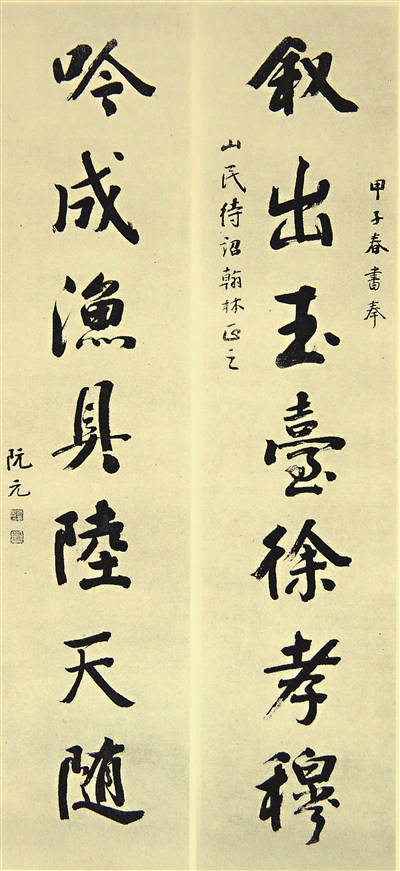 甲子春書奉
叙出玉臺徐孝穆
山民待詔翰林正之
吟成漁具陸天随
阮元